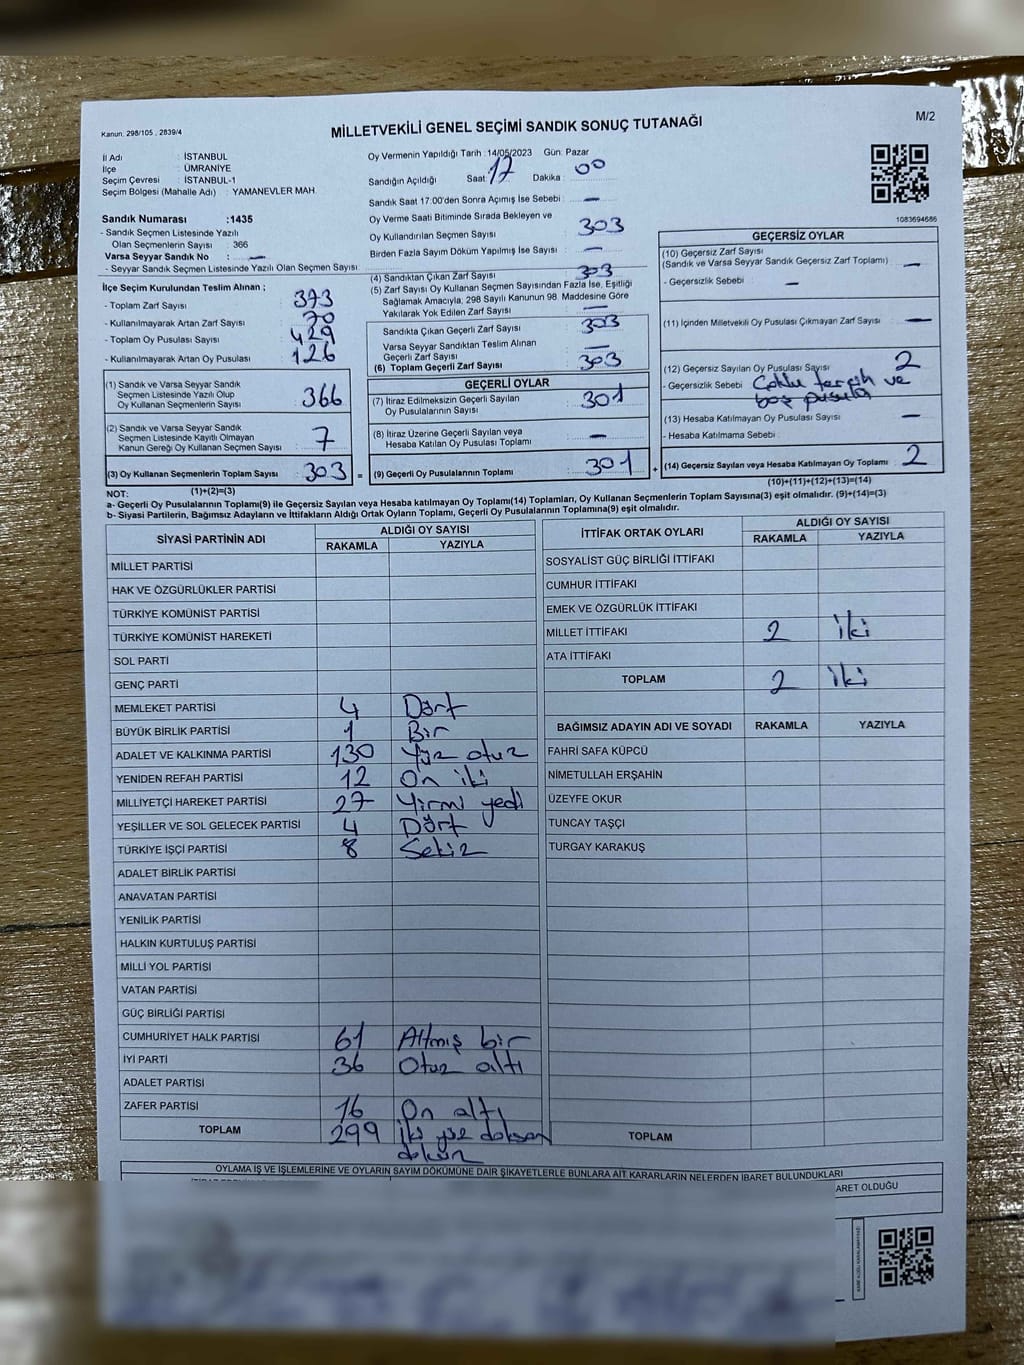 Kanun: 298/105 , 2839/4
MİLLETVEKİLİ GENEL SEÇİMİ SANDIK SONUÇ TUTANAĞI
M/2
İl Adı : İSTANBUL
İlçe : ÜMRANİYE
Seçim Çevresi : İSTANBUL-1
Seçim Bölgesi (Mahalle Adı) : YAMANEVLER MAH.
Sandık Numarası :1435
- Sandık Seçmen Listesinde Yazılı
Olan Seçmenlerin Sayısı : 366
Varsa Seyyar Sandık No : —
- Seyyar Sandık Seçmen Listesinde Yazılı Olan Seçmen Sayısı :
İlçe Seçim Kurulundan Teslim Alınan ;
- Toplam Zarf Sayısı : 373
- Kullanılmayarak Artan Zarf Sayısı : 70
- Toplam Oy Pusulası Sayısı : 429
- Kullanılmayarak Artan Oy Pusulası : 126
(1) Sandık ve Varsa Seyyar Sandık
Seçmen Listesinde Yazılı Olup
Oy Kullanan Seçmenlerin Sayısı : 366
(2) Sandık ve Varsa Seyyar Sandık
Seçmen Listesinde Kayıtlı Olmayan
Kanun Gereği Oy Kullanan Seçmen Sayısı : 7
(3) Oy Kullanan Seçmenlerin Toplam Sayısı : 303
(1)+(2)=(3)
Oy Vermenin Yapıldığı Tarih : 14/05/2023 Gün: Pazar
Sandığın Açıldığı Saat: 17 Dakika : 00
Sandık Saat 17:00'den Sonra Açımış İse Sebebi : —
Oy Verme Saati Bitiminde Sırada Bekleyen ve
Oy Kullandırılan Seçmen Sayısı : 303
Birden Fazla Sayım Döküm Yapılmış İse Sayısı : —
(4) Sandıktan Çıkan Zarf Sayısı : 303
(5) Zarf Sayısı Oy Kullanan Seçmen Sayısından Fazla İse, Eşitliği
Sağlamak Amacıyla, 298 Sayılı Kanunun 98. Maddesine Göre
Yakılarak Yok Edilen Zarf Sayısı : —
Sandıkta Çıkan Geçerli Zarf Sayısı : 303
Varsa Seyyar Sandıktan Teslim Alınan
Geçerli Zarf Sayısı : —
(6) Toplam Geçerli Zarf Sayısı : 303
GEÇERLİ OYLAR
(7) İtiraz Edilmeksizin Geçerli Sayılan
Oy Pusulalarının Sayısı : 301
(8) İtiraz Üzerine Geçerli Sayılan veya
Hesaba Katılan Oy Pusulası Toplamı : —
= (9) Geçerli Oy Pusulalarının Toplamı : 301 +
1083694686
GEÇERSİZ OYLAR
(10) Geçersiz Zarf Sayısı
(Sandık ve Varsa Seyyar Sandık Geçersiz Zarf Toplamı) : —
- Geçersizlik Sebebi : —
(11) İçinden Milletvekili Oy Pusulası Çıkmayan Zarf Sayısı : —
(12) Geçersiz Sayılan Oy Pusulası Sayısı : 2
- Geçersizlik Sebebi : Çoklu tercih ve
boş pusula
(13) Hesaba Katılmayan Oy Pusulası Sayısı : —
- Hesaba Katılmama Sebebi :
(14) Geçersiz Sayılan veya Hesaba Katılmayan Oy Toplamı : 2
(10)+(11)+(12)+(13)=(14)
NOT:
a- Geçerli Oy Pusulalarının Toplamı(9) ile Geçersiz Sayılan veya Hesaba katılmayan Oy Toplamı(14) Toplamları, Oy Kullanan Seçmenlerin Toplam Sayısına(3) eşit olmalıdır. (9)+(14)=(3)
b- Siyasi Partilerin, Bağımsız Adayların ve İttifakların Aldığı Ortak Oyların Toplamı, Geçerli Oy Pusulalarının Toplamına(9) eşit olmalıdır.
SİYASİ PARTİNİN ADI ALDIĞI OY SAYISI
RAKAMLA YAZIYLA
MİLLET PARTİSİ
HAK VE ÖZGÜRLÜKLER PARTİSİ
TÜRKİYE KOMÜNİST PARTİSİ
TÜRKİYE KOMÜNİST HAREKETİ
SOL PARTİ
GENÇ PARTİ
MEMLEKET PARTİSİ 4 Dört
BÜYÜK BİRLİK PARTİSİ 1 Bir
ADALET VE KALKINMA PARTİSİ 130 Yüz otuz
YENİDEN REFAH PARTİSİ 12 On iki
MİLLİYETÇİ HAREKET PARTİSİ 27 Yirmi yedi
YEŞİLLER VE SOL GELECEK PARTİSİ 4 Dört
TÜRKİYE İŞÇİ PARTİSİ 8 Sekiz
ADALET BİRLİK PARTİSİ
ANAVATAN PARTİSİ
YENİLİK PARTİSİ
HALKIN KURTULUŞ PARTİSİ
MİLLİ YOL PARTİSİ
VATAN PARTİSİ
GÜÇ BİRLİĞİ PARTİSİ
CUMHURİYET HALK PARTİSİ 61 Altmış bir
İYİ PARTİ 36 Otuz altı
ADALET PARTİSİ
ZAFER PARTİSİ 16 On altı
TOPLAM 299 İki yüz doksan
dokuz
İTTİFAK ORTAK OYLARI ALDIĞI OY SAYISI
RAKAMLA YAZIYLA
SOSYALİST GÜÇ BİRLİĞİ İTTİFAKI
CUMHUR İTTİFAKI
EMEK VE ÖZGÜRLÜK İTTİFAKI
MİLLET İTTİFAKI 2 İki
ATA İTTİFAKI
TOPLAM 2 İki
BAĞIMSIZ ADAYIN ADI VE SOYADI RAKAMLA YAZIYLA
FAHRİ SAFA KÜPCÜ
NİMETULLAH ERŞAHİN
ÜZEYFE OKUR
TUNCAY TAŞÇI
TURGAY KARAKUŞ
TOPLAM
OYLAMA İŞ VE İŞLEMLERİNE VE OYLARIN SAYIM DÖKÜMÜNE DAİR ŞİKAYETLERLE BUNLARA AİT KARARLARIN NELERDEN İBARET BULUNDUKLARI
ARET OLDUĞU